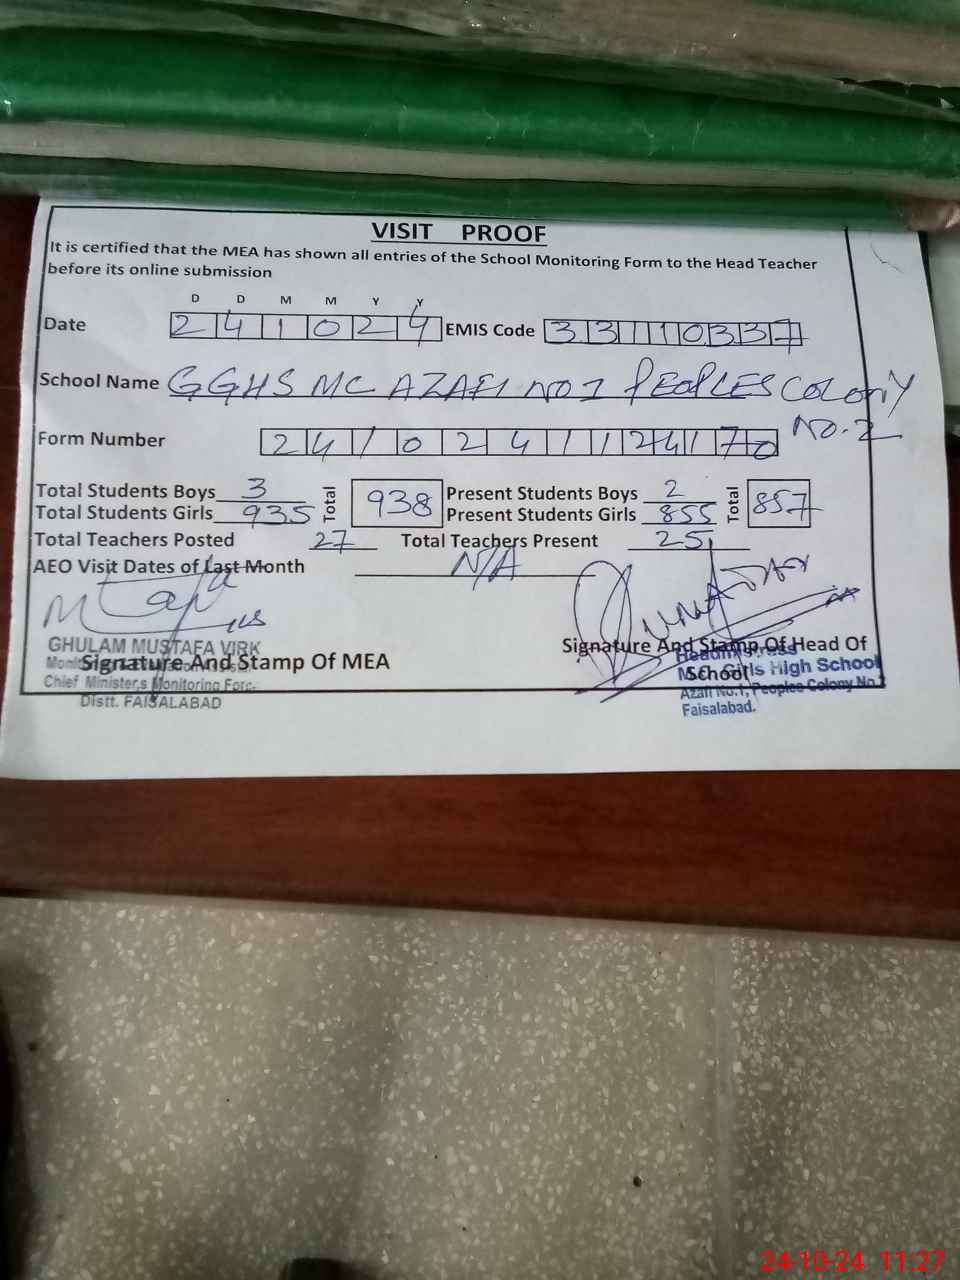 VISIT PROOF
It is certified that the MEA has shown all entries of the School Monitoring Form to the Head Teacher
before its online submission
D D M M Y Y
Date 241024 EMIS Code 33110337
School Name GGHS MC AZAFI NO 1 PEOPLES COLONY
NO. 2
Form Number 24/0241124170
Total Students Boys 3 Total 938 Present Students Boys 2 Total 857
Total Students Girls 935 Present Students Girls 855
Total Teachers Posted 27 Total Teachers Present 25
AEO Visit Dates of Last Month N/A
GHULAM MUSTAFA VIRK
Signature And Stamp Of MEA
Chief Minister,s Monitoring Forc.
Distt. FAISALABAD
Signature And Stamp Of Head Of
School
Headmistress
M.C. Girls High School
Azafi No.1, Peoples Colony No.2
Faisalabad.
24-10-24 11:27